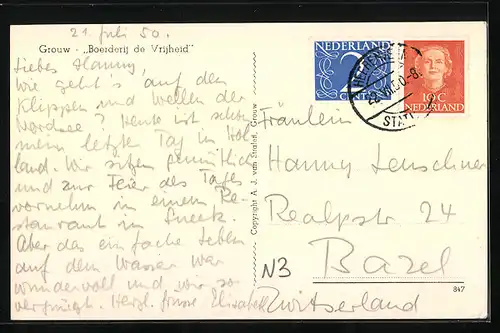 21. Juli 50.
Grouw - „Boerderij de Vrijheid"
Liebes Hanny,
Wie geht's auf den
Klippen und Wellen der
Nordsee? Heute ist schon
mein letzter Tag in Hol-
land. Wir sitzen gemütlich
und zur Feier des Tages
vornehm in einem Re-
staurant in Sneek.
Aber das einfache Leben
auf dem Wasser war
wundervoll und wir so
vergnügt. Herzl. Grüsse Elisabeth
Copyright A. J. van Straten, Grouw
2
CENT
10 C
NEDERLAND
STAT
Fräulein
Hanny Leuschner
Realpstr 24
Basel
N3
Zwitserland
847